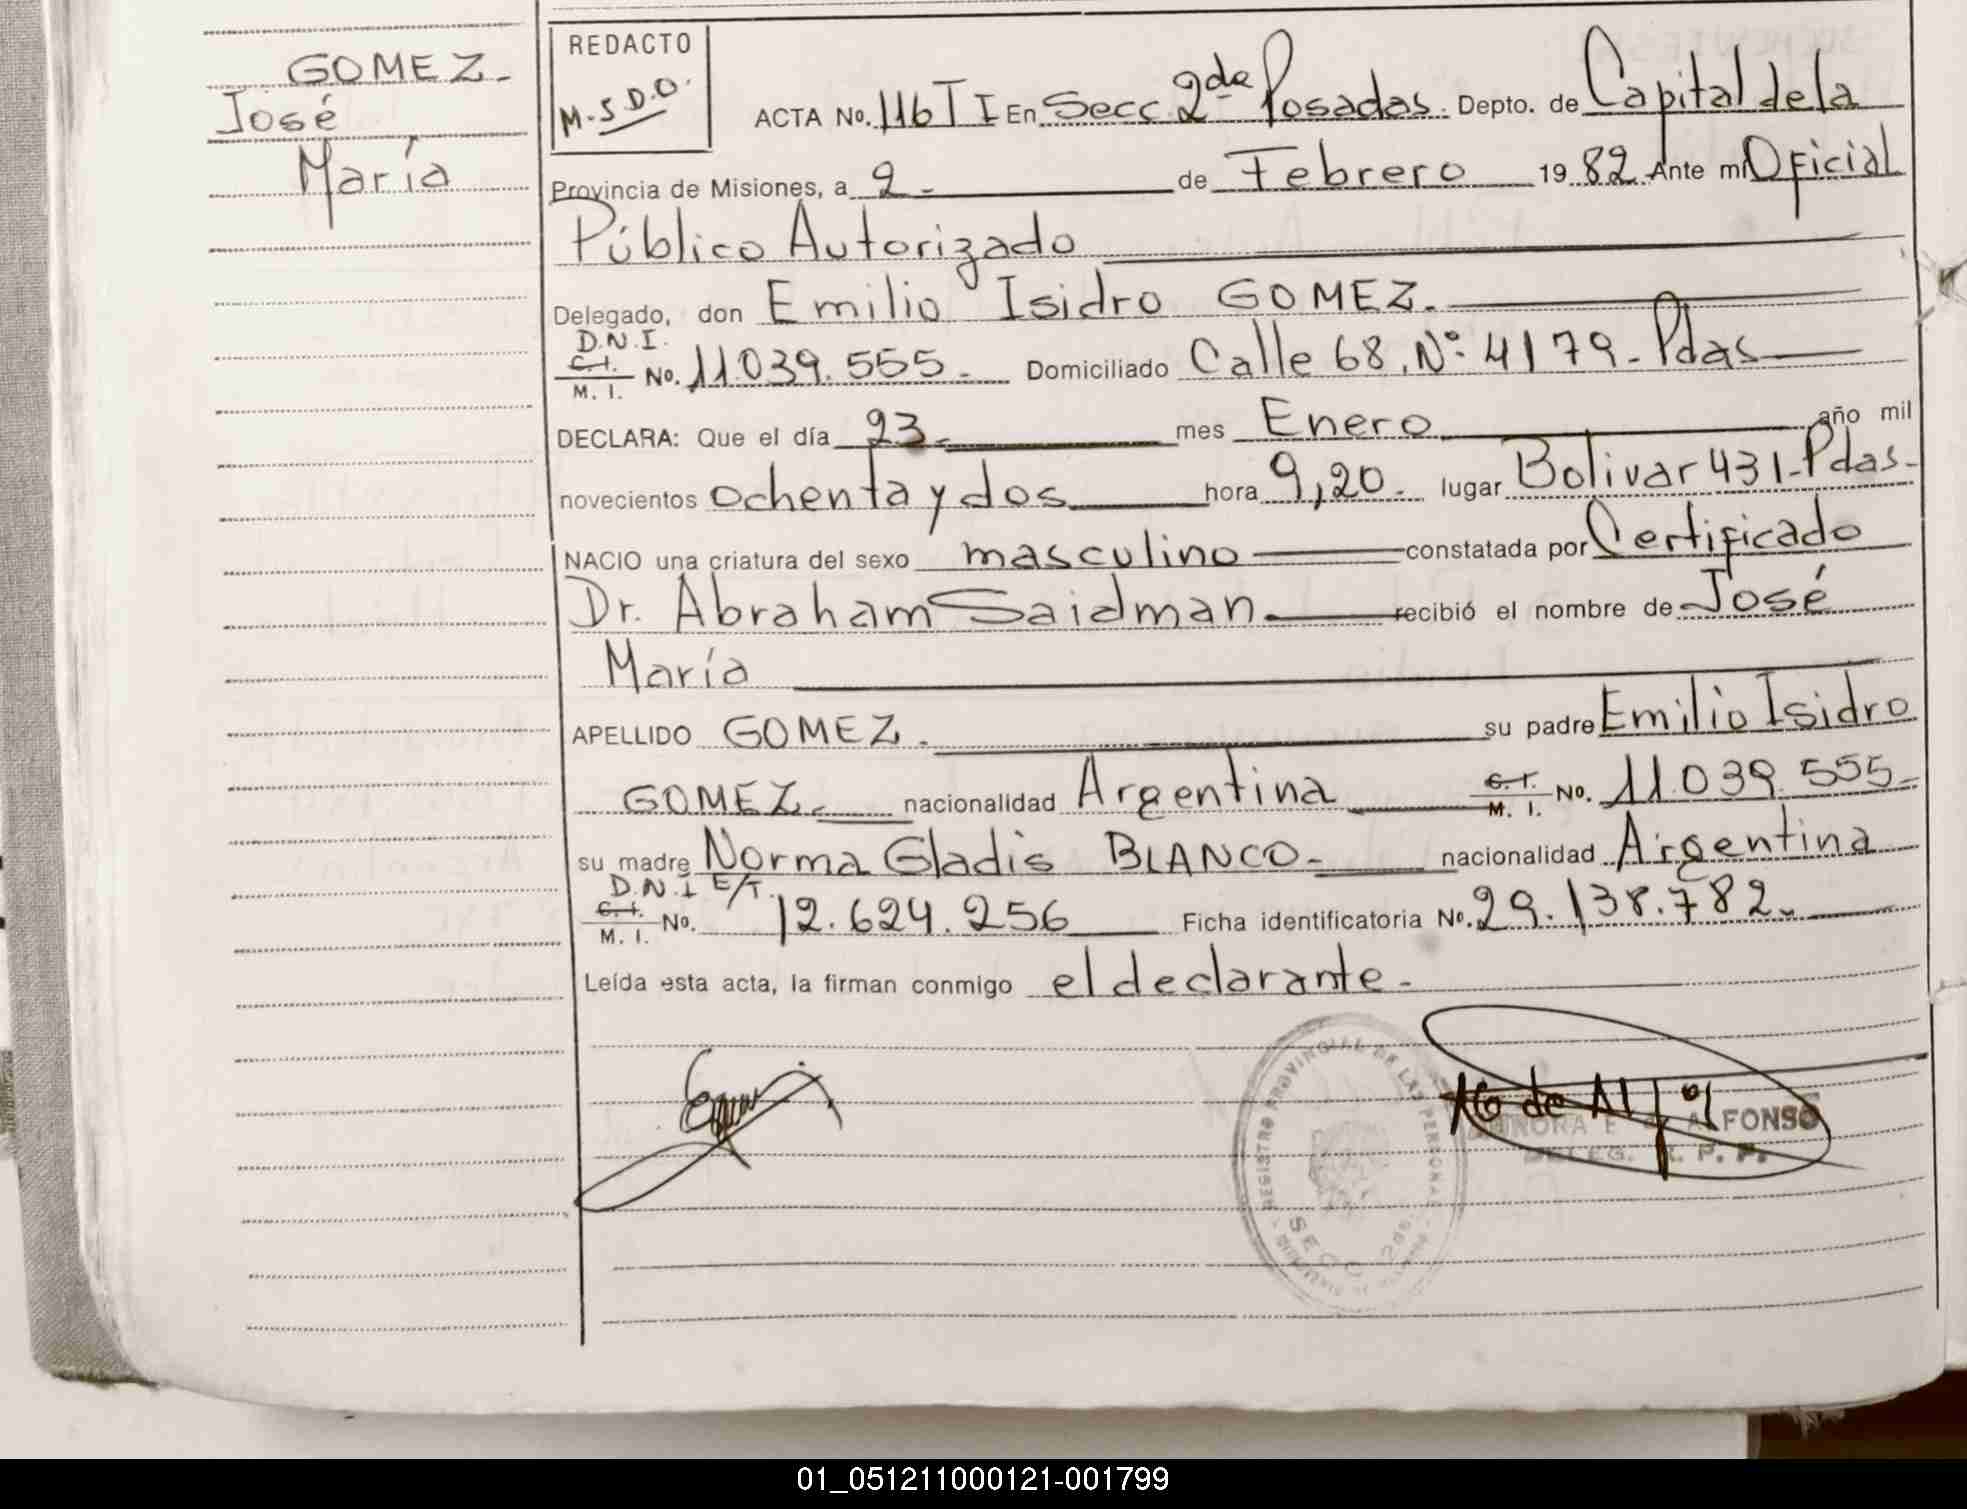 GOMEZ.
José
María
REDACTO
M.S.D.O.
ACTA No. 116 T I En Secc 2da Posadas. Depto. de Capital de la
Provincia de Misiones, a 2. de Febrero 19 82 Ante mi Oficial
Público Autorizado
Delegado, don Emilio Isidro GOMEZ.
D.N.I.
C.I. M. I. No. 11.039.555. Domiciliado Calle 68, Nº 4179 - Pdas
DECLARA: Que el día 23. mes Enero año mil
novecientos ochenta y dos hora 9,20. lugar Bolivar 431-Pdas-
NACIO una criatura del sexo masculino constatada por Certificado
Dr. Abraham Saidman recibió el nombre de José
María
APELLIDO GOMEZ. su padre Emilio Isidro
GOMEZ. nacionalidad Argentina C.I. M. I. No. 11.039.555.
su madre Norma Gladis BLANCO- nacionalidad Argentina
D.N.I E/T.
C.I. M. I. No. 12.624.256 Ficha identificatoria No. 29.138.782.
Leída esta acta, la firman conmigo el declarante.
REGISTRO PROVINCIAL DE LAS PERSONAS
SECC. 2da.
ALFONSO
DELEG. R. P. P.
01_051211000121-001799